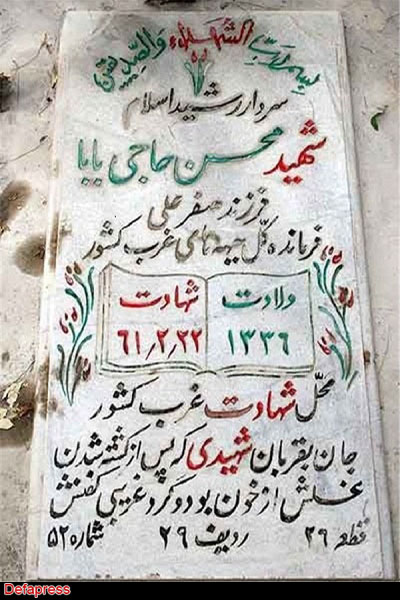 بسم رب الشهداء والصدیقین
سردار رشید اسلام
شهید محسن حاجی بابا
فرزند صفر علی
فرمانده کل جبهه های غرب کشور
ولادت
۱۳۳۶
شهادت
۶۱/۲/۲۲
محل شهادت غرب کشور
جان بقربان شهیدی که پس از کشته شدن
غسلش از خون بود و گرد غریبی کفنش
قطعه ۲۹ ردیف ۲۹ شماره ۵۲
Defapress